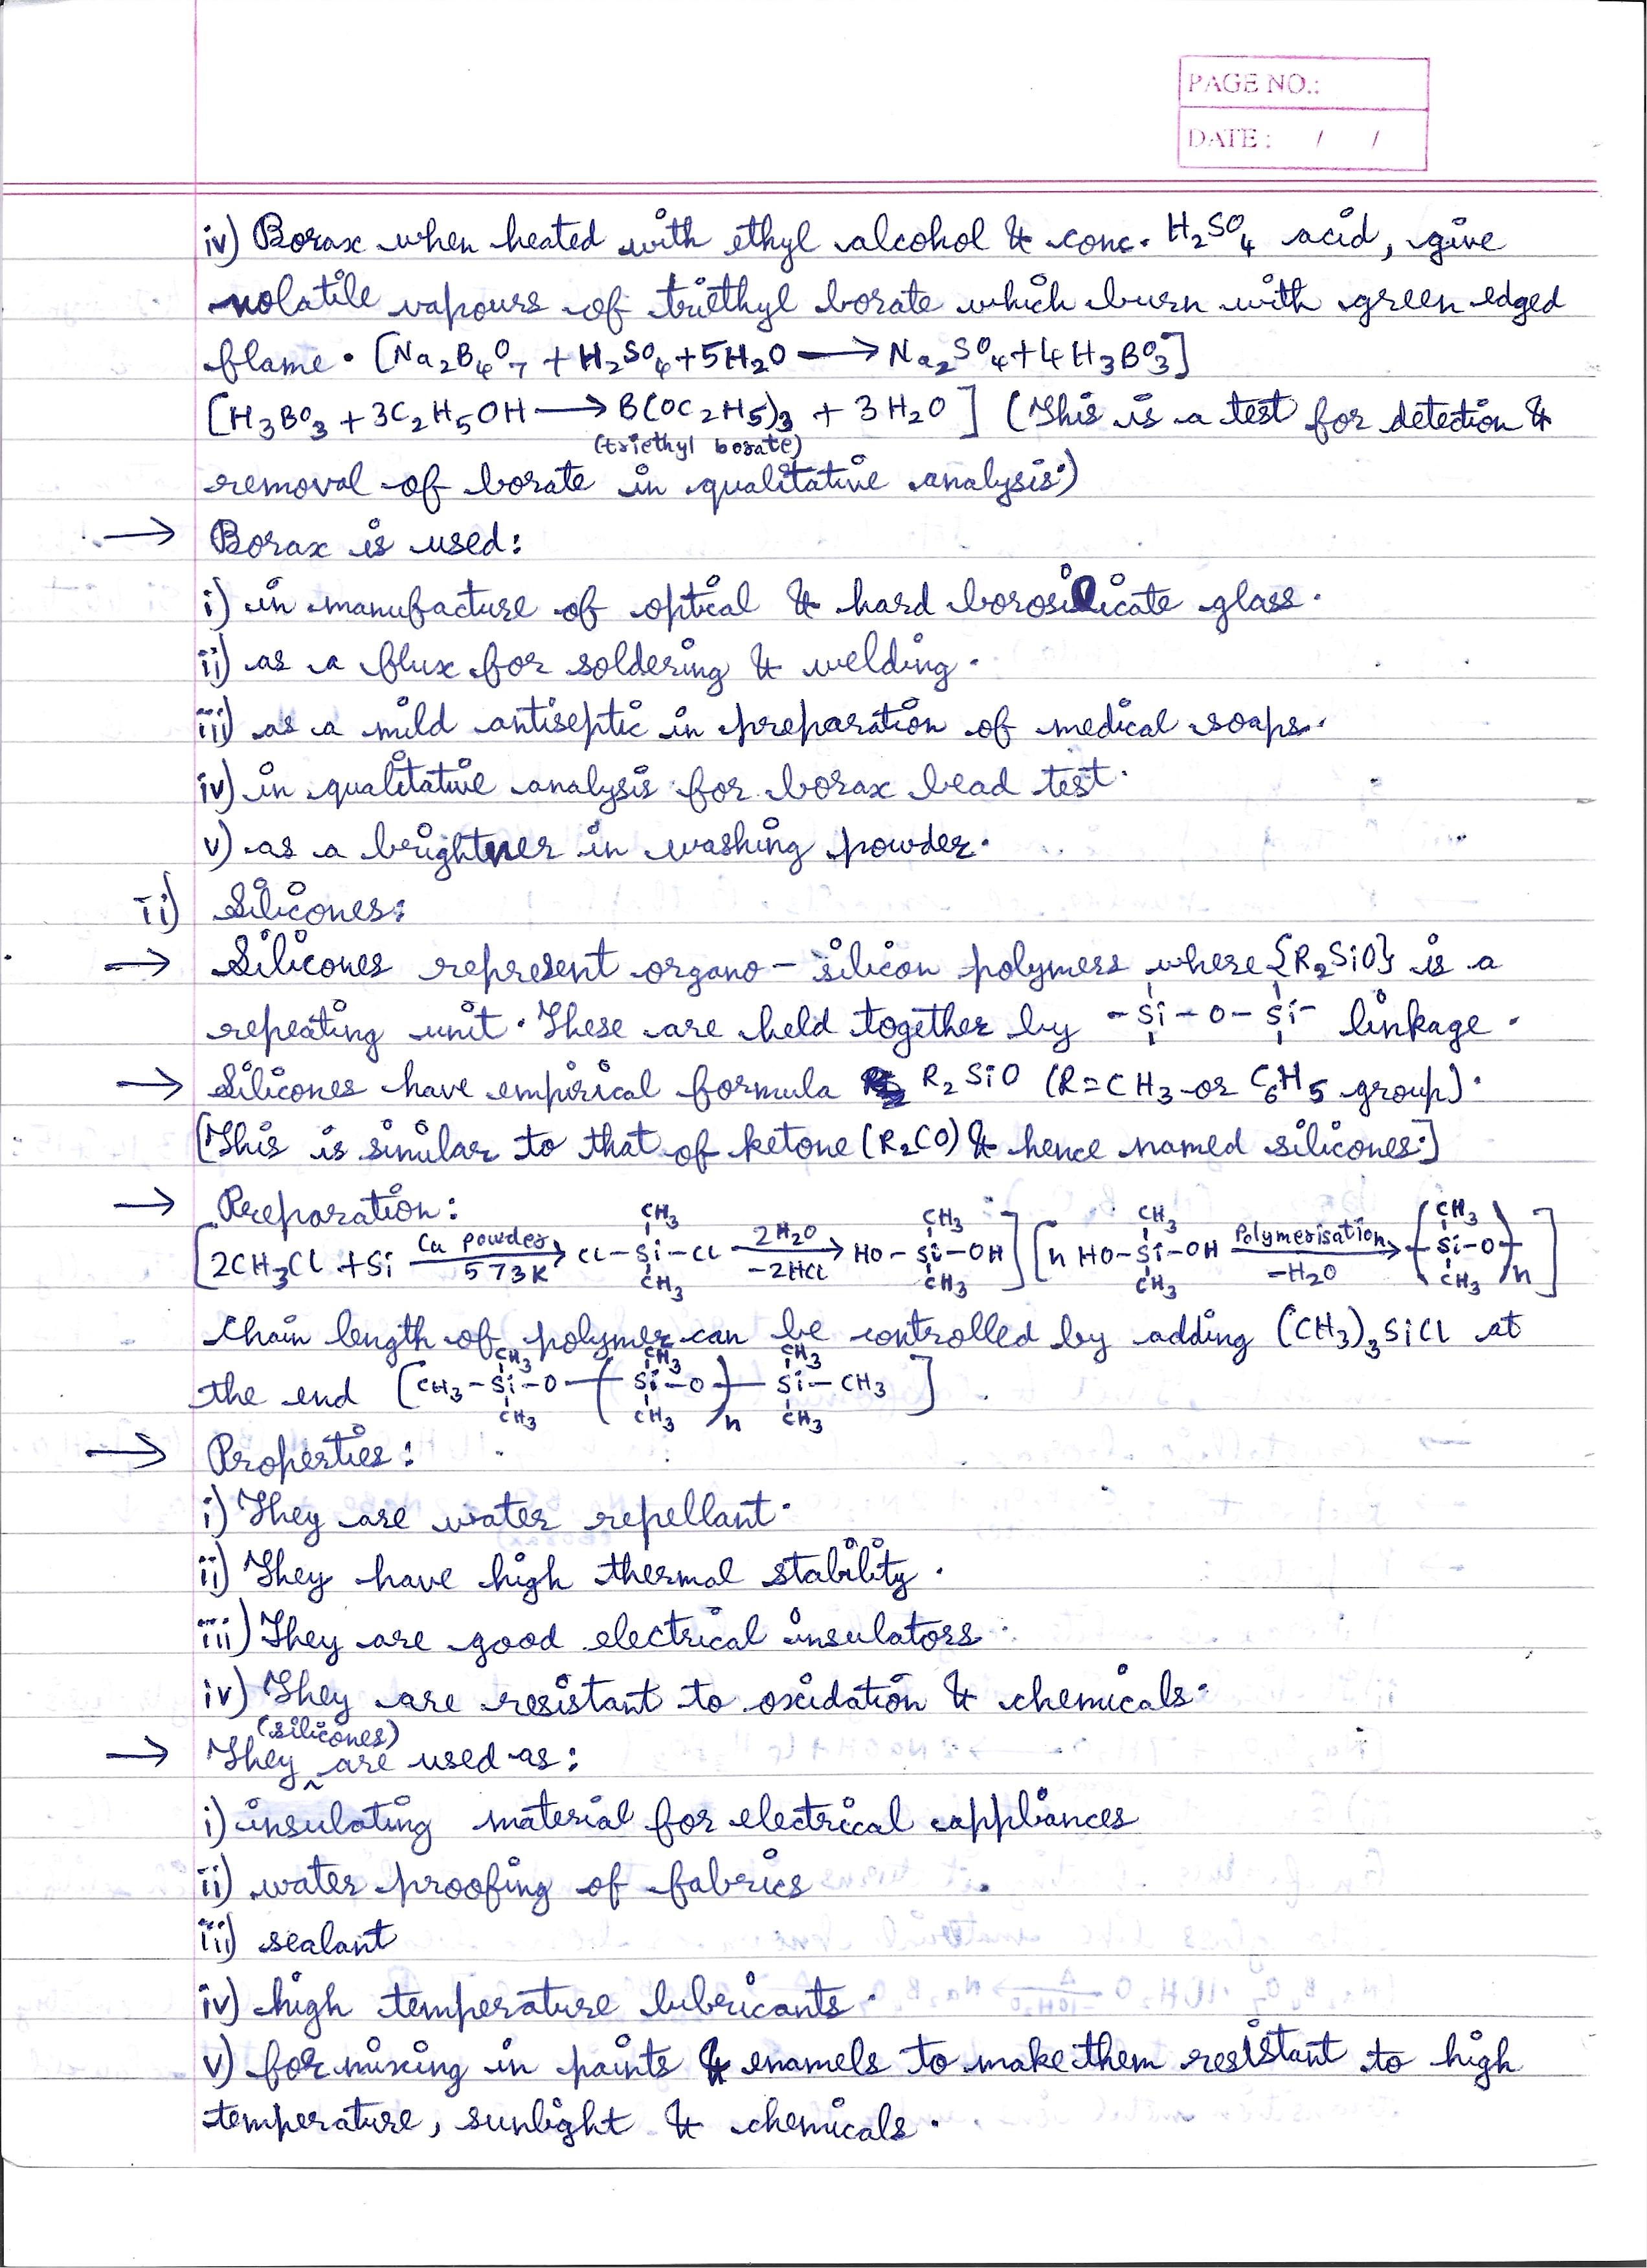 PAGE NO.:
DATE : / /
iv) Borax when heated with ethyl alcohol & conc. H₂SO₄ acid, give
volatile vapours of triethyl borate which burn with green edged
flame. [Na₂B₄O₇ + H₂SO₄ + 5H₂O ⟶ Na₂SO₄ + 4H₃BO₃]
[H₃BO₃ + 3C₂H₅OH ⟶ B(OC₂H₅)₃ + 3H₂O] (This is a test for detection &
(triethyl borate)
removal of borate in qualitative analysis.)
→ Borax is used:
i) in manufacture of optical & hard borosilicate glass.
ii) as a flux for soldering & welding.
iii) as a mild antiseptic in preparation of medical soaps.
iv) in qualitative analysis for borax bead test.
v) as a brightner in washing powder.
ii) Silicones:
→ Silicones represent organo-silicon polymers where {R₂SiO} is a
repeating unit. These are held together by -Si-O-Si- linkage.
→ Silicones have empirical formula R₂SiO (R=CH₃ or C₆H₅ group).
[This is similar to that of ketone (R₂CO) & hence named silicones.]
→ Preparation:
CH₃ CH₃ CH₃ CH₃
[2CH₃Cl + Si Cu powder/573K ⟶ Cl-Si-Cl 2H₂O/-2HCl ⟶ HO-Si-OH] [n HO-Si-OH Polymerisation/-H₂O ⟶ (Si-O)n]
CH₃ CH₃ CH₃ CH₃
Chain length of polymer can be controlled by adding (CH₃)₃SiCl at
CH₃ CH₃ CH₃
the end [CH₃-Si-O-(Si-O)n-Si-CH₃]
CH₃ CH₃ CH₃
→ Properties:
i) They are water repellant.
ii) They have high thermal stability.
iii) They are good electrical insulators.
iv) They are resistant to oxidation & chemicals.
(silicones)
→ They ^ are used as:
i) insulating material for electrical appliances
ii) water proofing of fabrics
iii) sealant
iv) high temperature lubricants.
v) for mixing in paints & enamels to make them resistant to high
temperature, sunlight & chemicals.